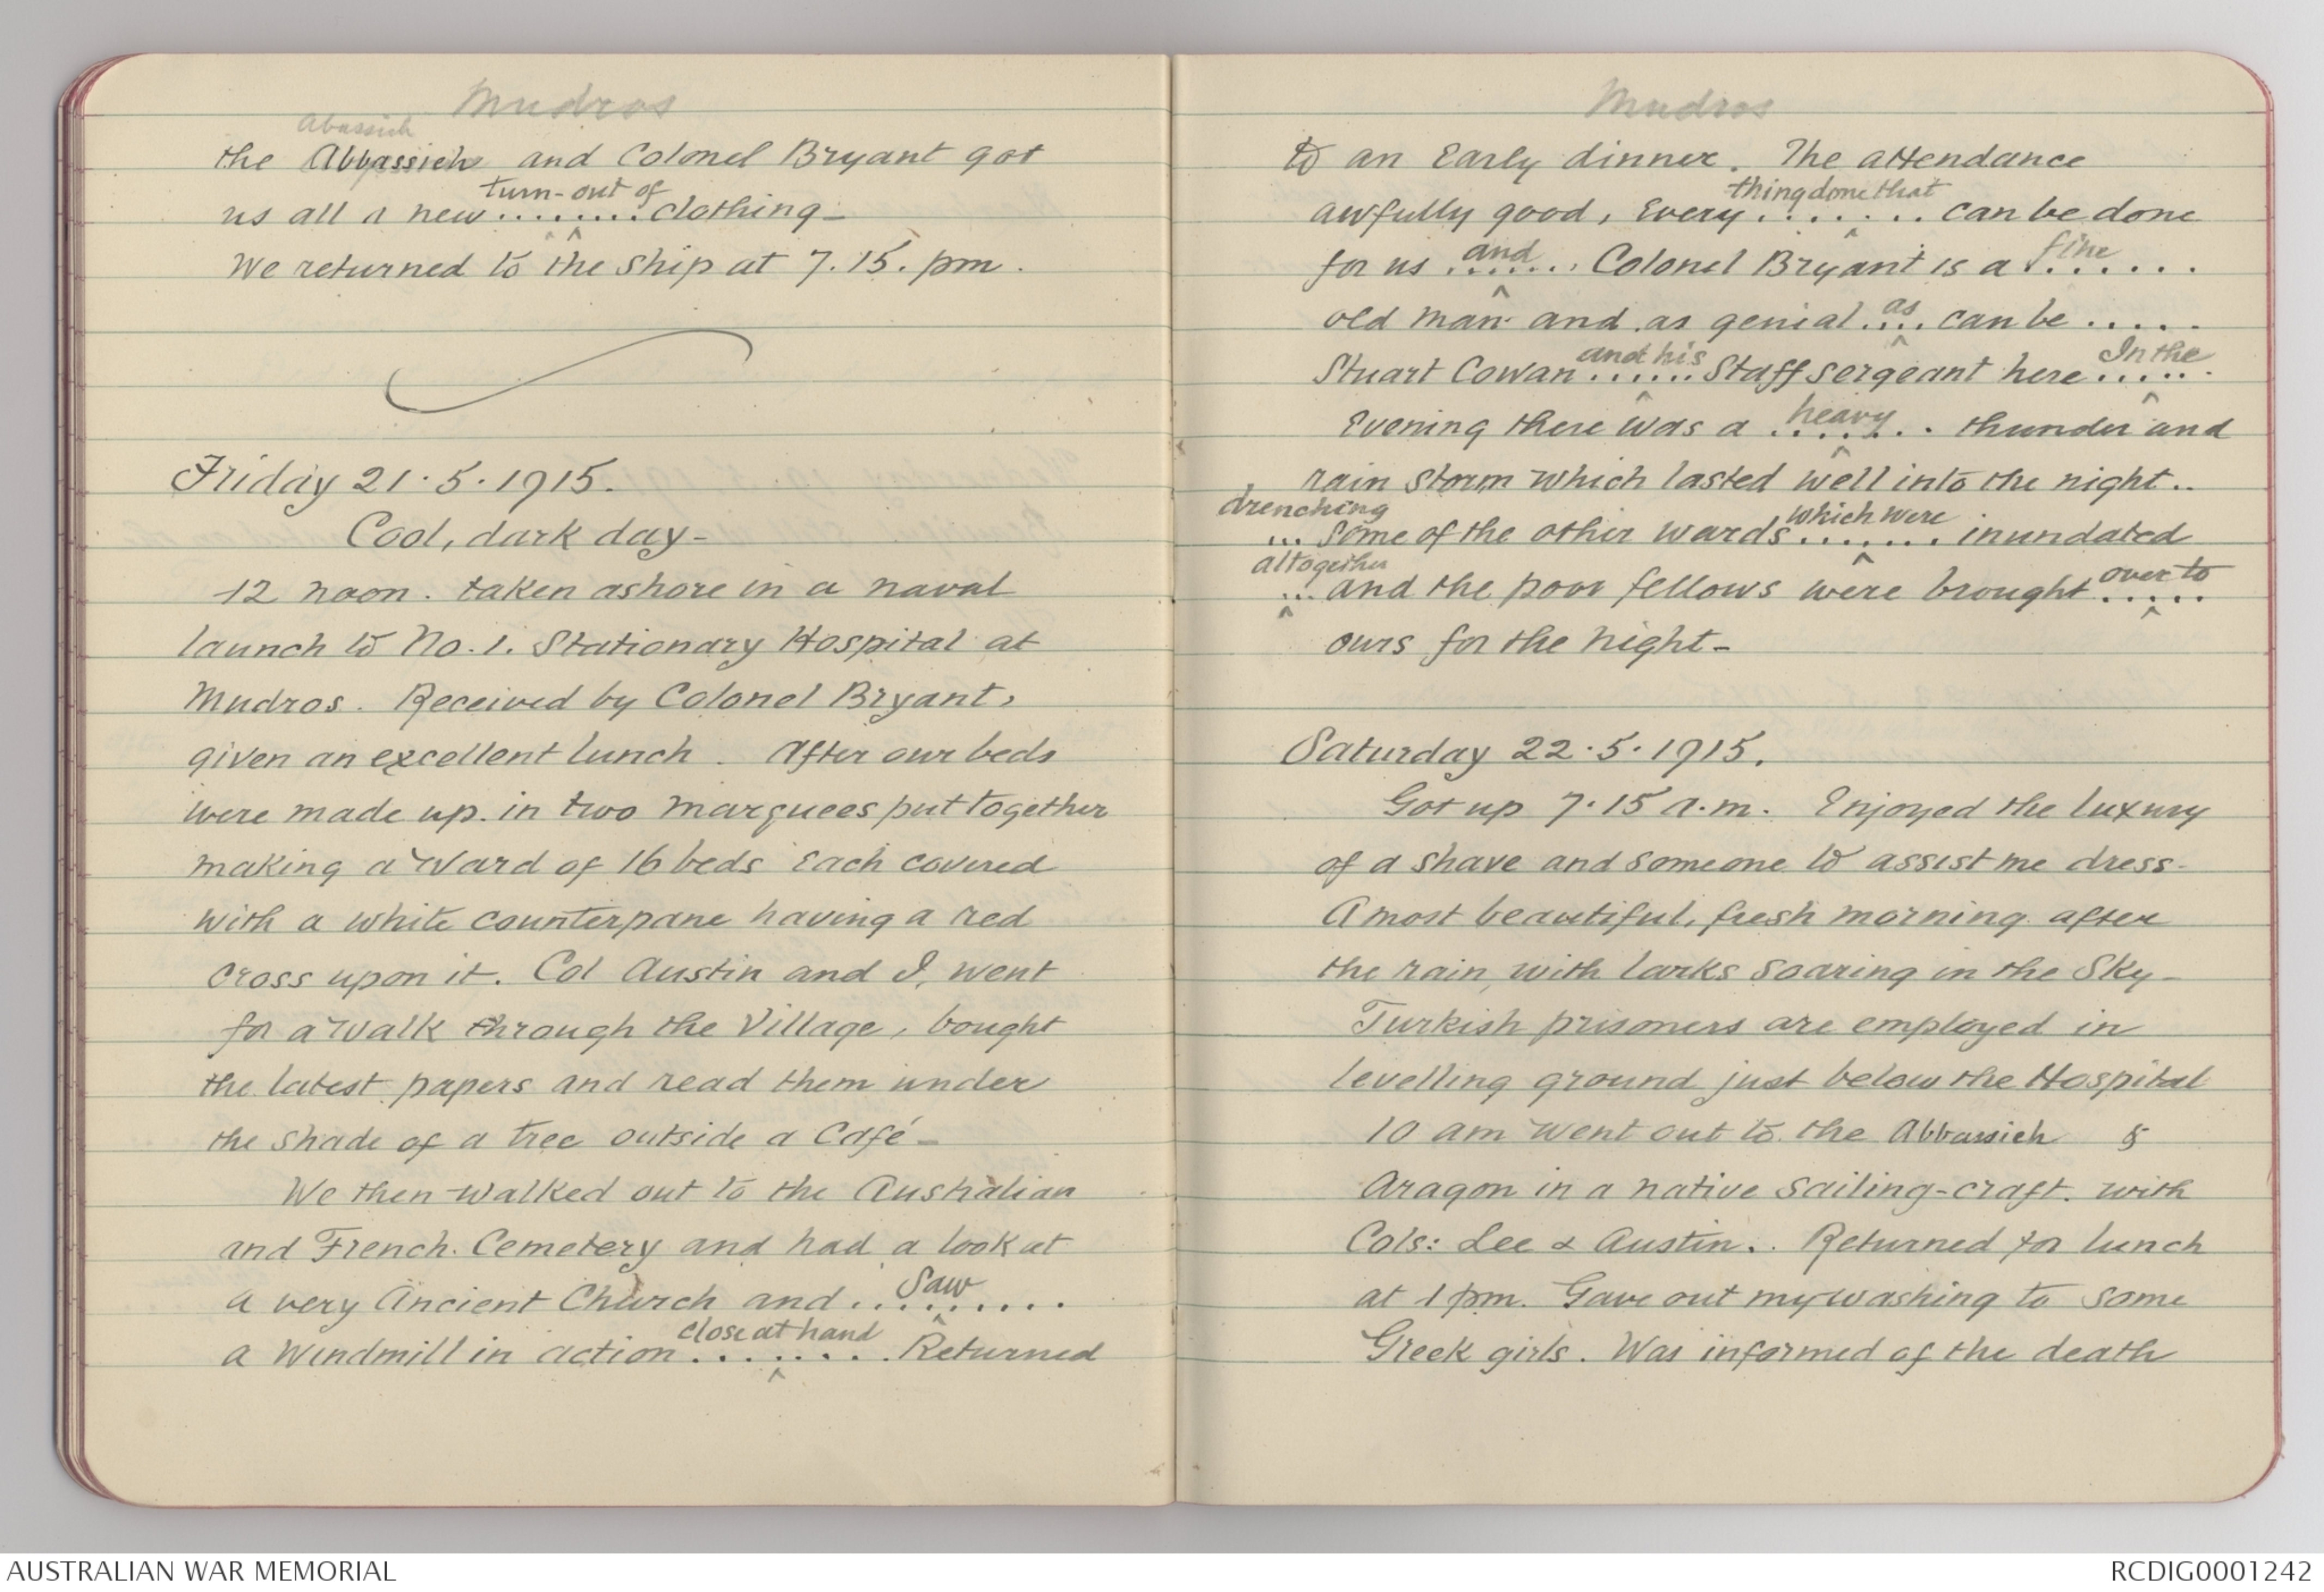 Mudros
Abassieh
the Abbassieh and Colonel Bryant got
turn-out of
us all a new ........ clothing-
We returned to the ship at 7.15. pm.
Friday 21.5.1915.
Cool, dark day-
12 noon. taken ashore in a naval
launch to No. 1. Stationary Hospital at
Mudros. Received by Colonel Bryant,
given an excellent lunch. After our beds
were made up. in two marquees put together
making a Ward of 16 beds Each covered
with a white counterpane having a red
cross upon it. Col Austin and I, went
for a walk through the Village, bought
the latest papers and read them under
the shade of a tree outside a Café-
We then walked out to the Australian
and French. Cemetery and had a look at
Saw
a very Ancient Church and .........
close at hand
a Windmill in action ........ Returned
Mudros
to an Early dinner. The attendance
thing done that
awfully good, Every ....... can be done
and fine
for us ....... Colonel Bryant is a .......
as
old man and as genial .... can be .....
and his In the
Stuart Cowan ...... Staff sergeant here ......
heavy
Evening there was a ....... thunder and
rain storm which lasted well into the night..
drenching which were
... some of the other wards ....... inundated
altogether over to
... and the poor fellows were brought .....
ours for the night-
Saturday 22.5.1915.
Got up 7.15 a.m. Enjoyed the luxury
of a shave and someone to assist me dress-
A most beautiful, fresh morning after
the rain, with larks soaring in the Sky-
Turkish prisoners are employed in
levelling ground just below the Hospital
10 am went out to the Abbassieh &
Aragon in a native sailing-craft. with
Cols: Lee & Austin.. Returned for lunch
at 1 pm. Gave out my washing to some
Greek girls. Was informed of the death
AUSTRALIAN WAR MEMORIAL
RCDIG0001242